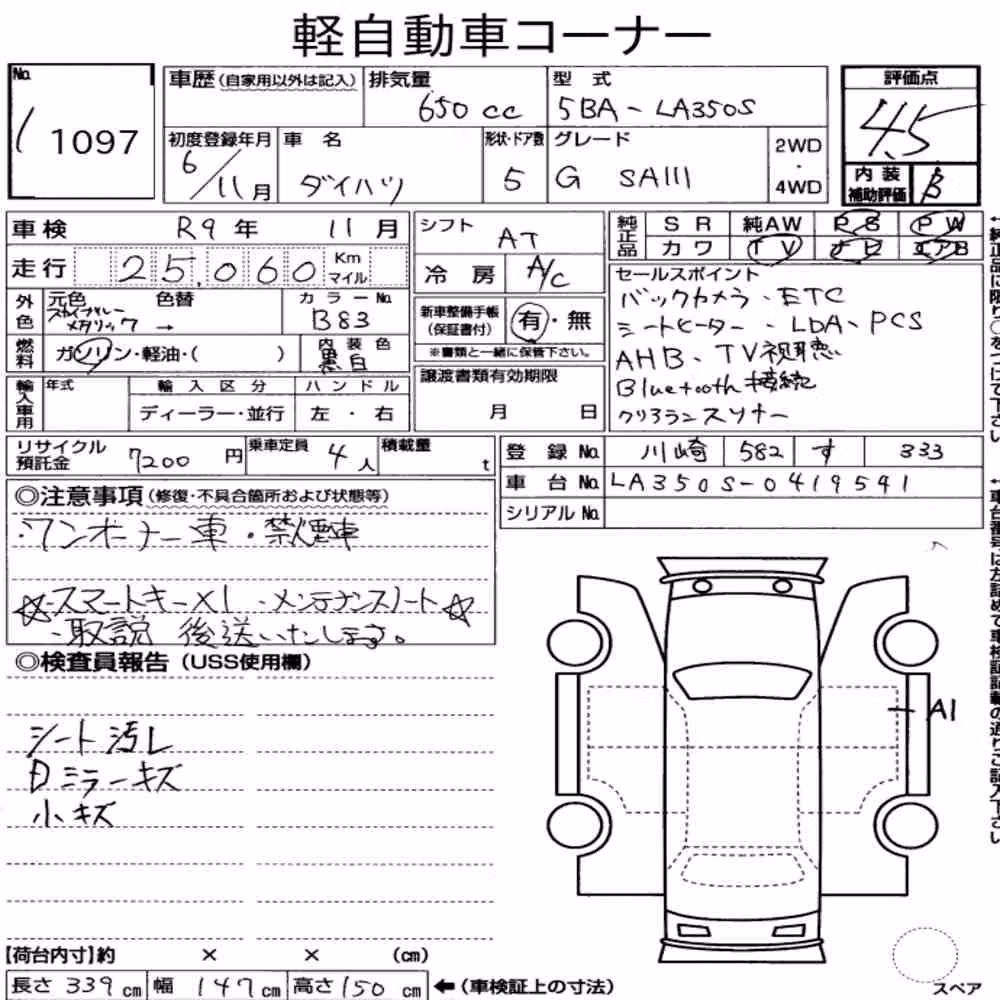 軽自動車コーナー
No. 1 1097
車歴(自家用以外は記入) 排気量 650 cc 型式 5BA-LA350S
評価点 4.5
初度登録年月 6/11月 車名 ダイハツ 形状・ドア数 5 グレード G SAIII 2WD・4WD
内装補助評価 B
車検 R9年 11月 シフト AT
純正品 SR 純AW PS PW
カワ TV ナビ エアB
走行 25,060 Km マイル 冷房 A/C
外色 元色 色替 カラーNo. B83
メタリック →
新車整備手帳(保証書付) 有・無
※書類と一緒に保管下さい。
燃料 ガソリン・軽油・( ) 内装色 黒白
セールスポイント
バックカメラ・ETC
シートヒーター・LDA、PCS
AHB、TV視聴
Bluetooth接続
クリアランスソナー
輸入車用 年式 輸入区分 ハンドル
ディーラー・並行 左・右
譲渡書類有効期限
月 日
リサイクル預託金 7200円 乗車定員 4人 積載量 t
登録No. 川崎 582 す 333
車台No. LA350S-0419591
シリアルNo.
◎注意事項(修復・不具合箇所および状態等)
・ワンオーナー車・禁煙車
☆・スマートキー×1 ・メンテナンスノート☆
・取説 後送いたします。
◎検査員報告(USS使用欄)
シート汚レ
ミラーキズ
小キズ
A1
【荷台内寸】約 × × (cm)
長さ 339cm 幅 147cm 高さ 150cm ←(車検証上の寸法)
スペア